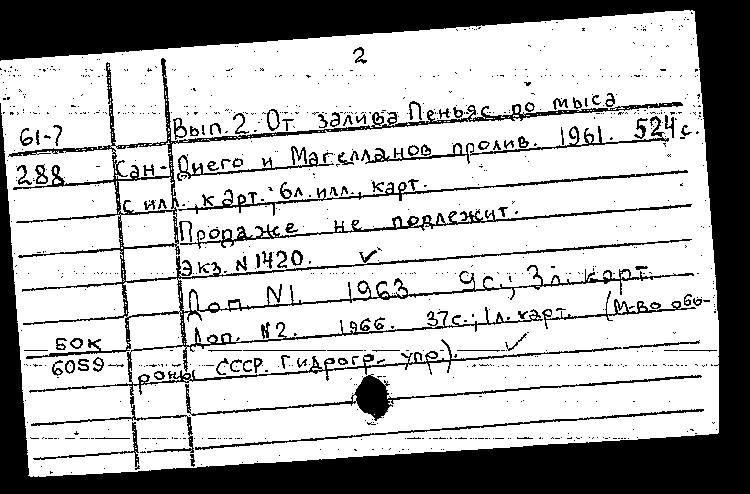 2
61-7 Вып. 2. От залива Пеньяс до мыса
288 Сан-Диего и Магелланов пролив. 1961. 524 с.
с илл., карт.; 6 л. илл., карт.
Продаже не подлежит.
Экз. N 1420. ✓
Доп. N1. 1963 9 с.; 3 л. карт.
БОК Доп. N2. 1966. 37с.; 1л. карт. (М-во обо-
6059 роны СССР. Гидрогр. упр.). ✓